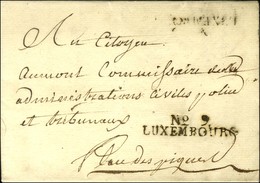 Au Citoyen
aumont Commissaire des
administrations Civiles, police
et tribunaux
No. 9
LUXEMBOURG
Place des piques